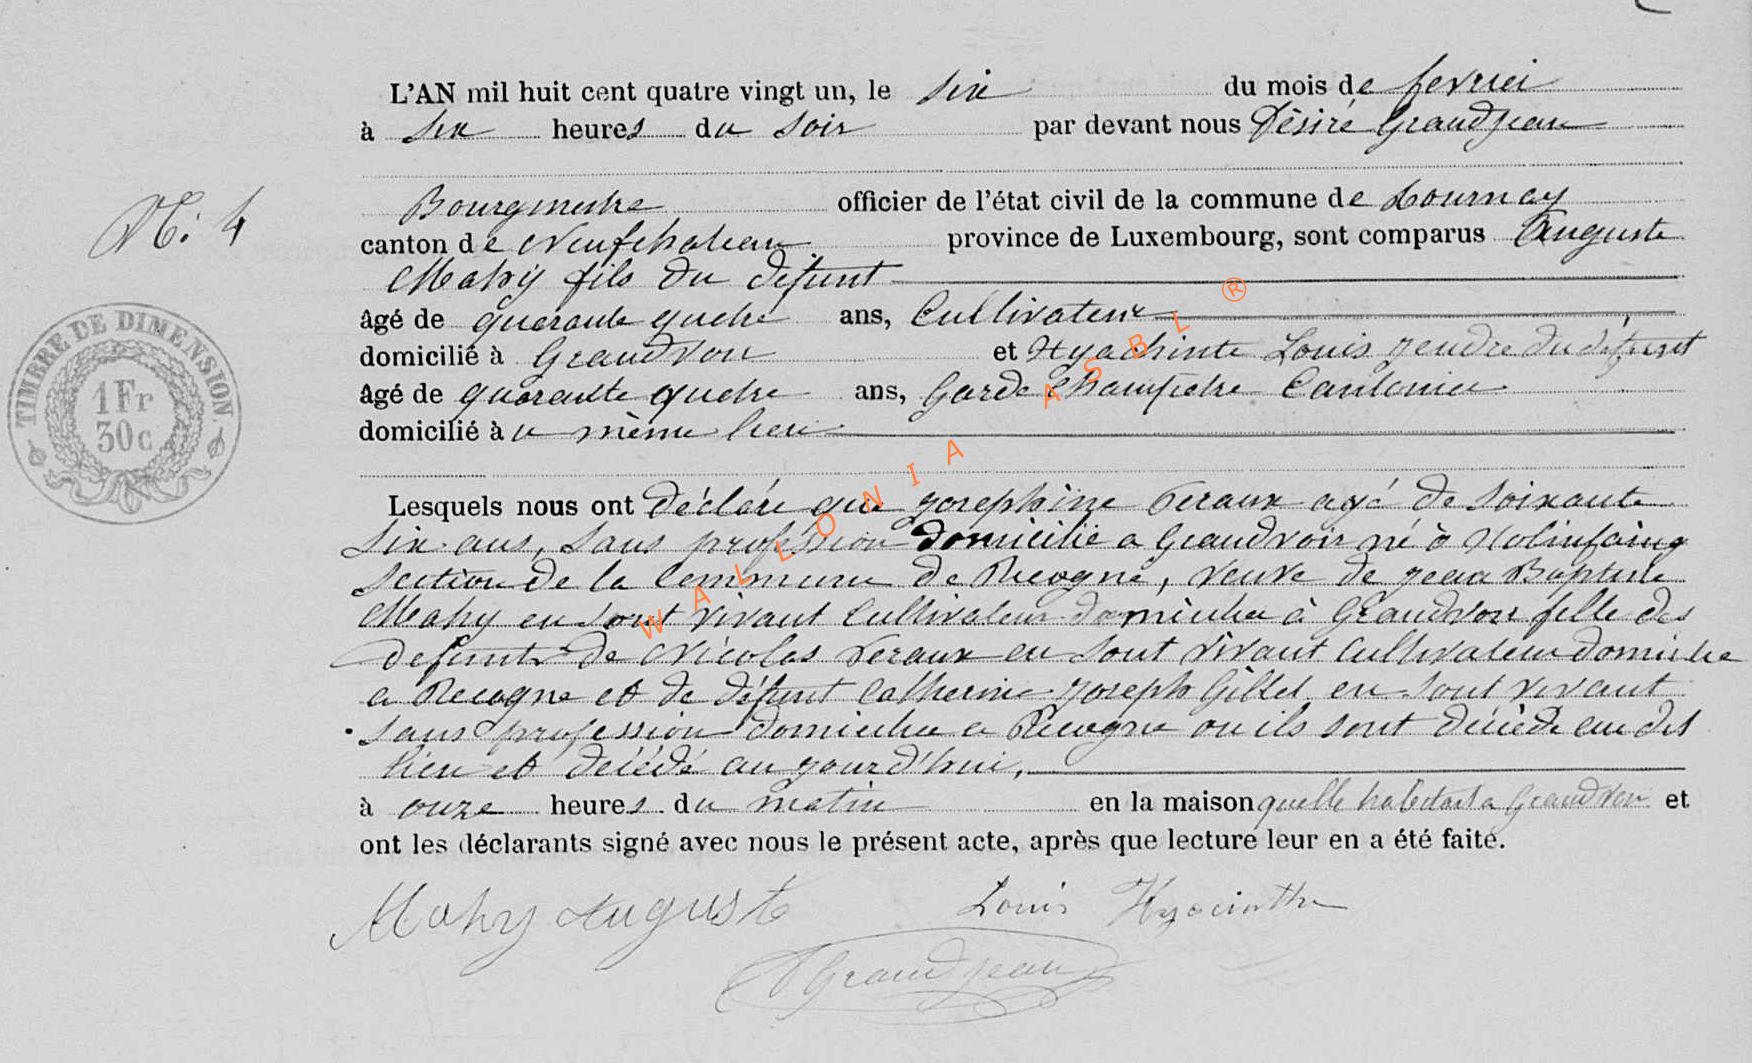 L'AN mil huit cent quatre vingt un, le six du mois de fevrier
à six heures du soir par devant nous Désiré Grandjean
N: 4
Bourgmestre officier de l'état civil de la commune de Tournay
canton de Neufchateau province de Luxembourg, sont comparus Auguste
Mahy fils du defunt
âgé de quarante quatre ans, Cultivateur
domicilié à Grandvoir et Hyachinte Louis gendre du défunt
âgé de quarante quatre ans, Garde Champetre Cantonier
domicilié à u même lieu
TIMBRE DE DIMENSION
1 Fr
30c
Lesquels nous ont déclaré que Josephine Feraux agé de soixante
six ans, sans profession domicilié a Grandvoir né à
section de la Commune de Recogne, veuve de Jean Baptiste
Mahy en sont vivant Cultivateur domicilie à Grandvoir fille des
defunts de Nicolas Feraux en sont vivant Cultivateur domicilie
a Recogne et de défunt Catherine Joseph Gillet en sont vivant
sans profession domicilie a Recogne ou ils sont décédé au dit
lieu et décédé aujourd'hui,
à onze heures du matin en la maison quelle habitait a Grandvoir et
ont les déclarants signé avec nous le présent acte, après que lecture leur en a été faite.
Mahy Auguste Louis Hyacinthe
DGrandjean
WALLONIA ASBL ®